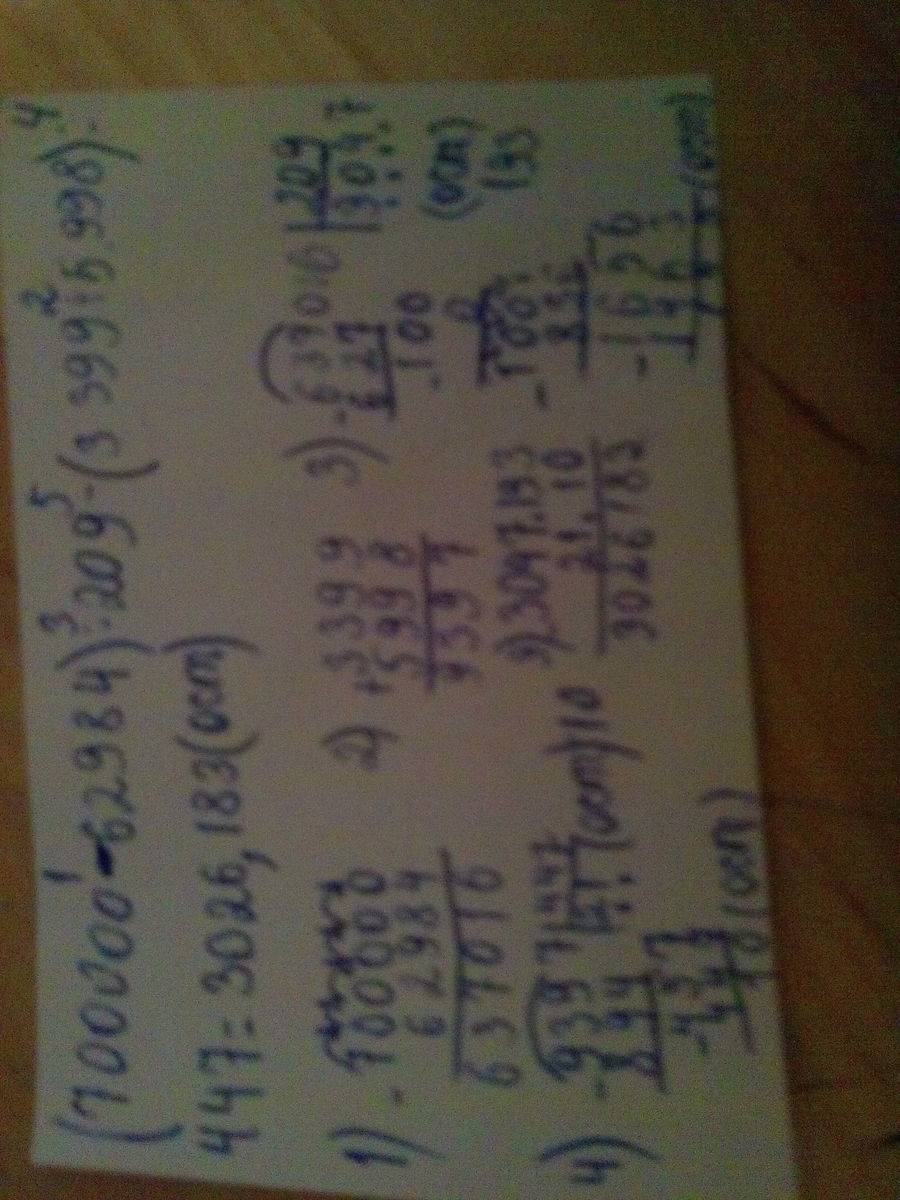 (700000-62984):209-(3399+5998):
1 3 5 2 4
447=3026,183(ост)
1) - 700000
62984
637016
2) +3399
5998
9397
3) -637016 |209
627 |304.7
100 (ост)
0 193
-1001
836
-1656
1463
(ост)
4) -9397 |447
894 |21 (ост)10
-457
447
10(ост)
5) 3047,193
21,10
3026 183